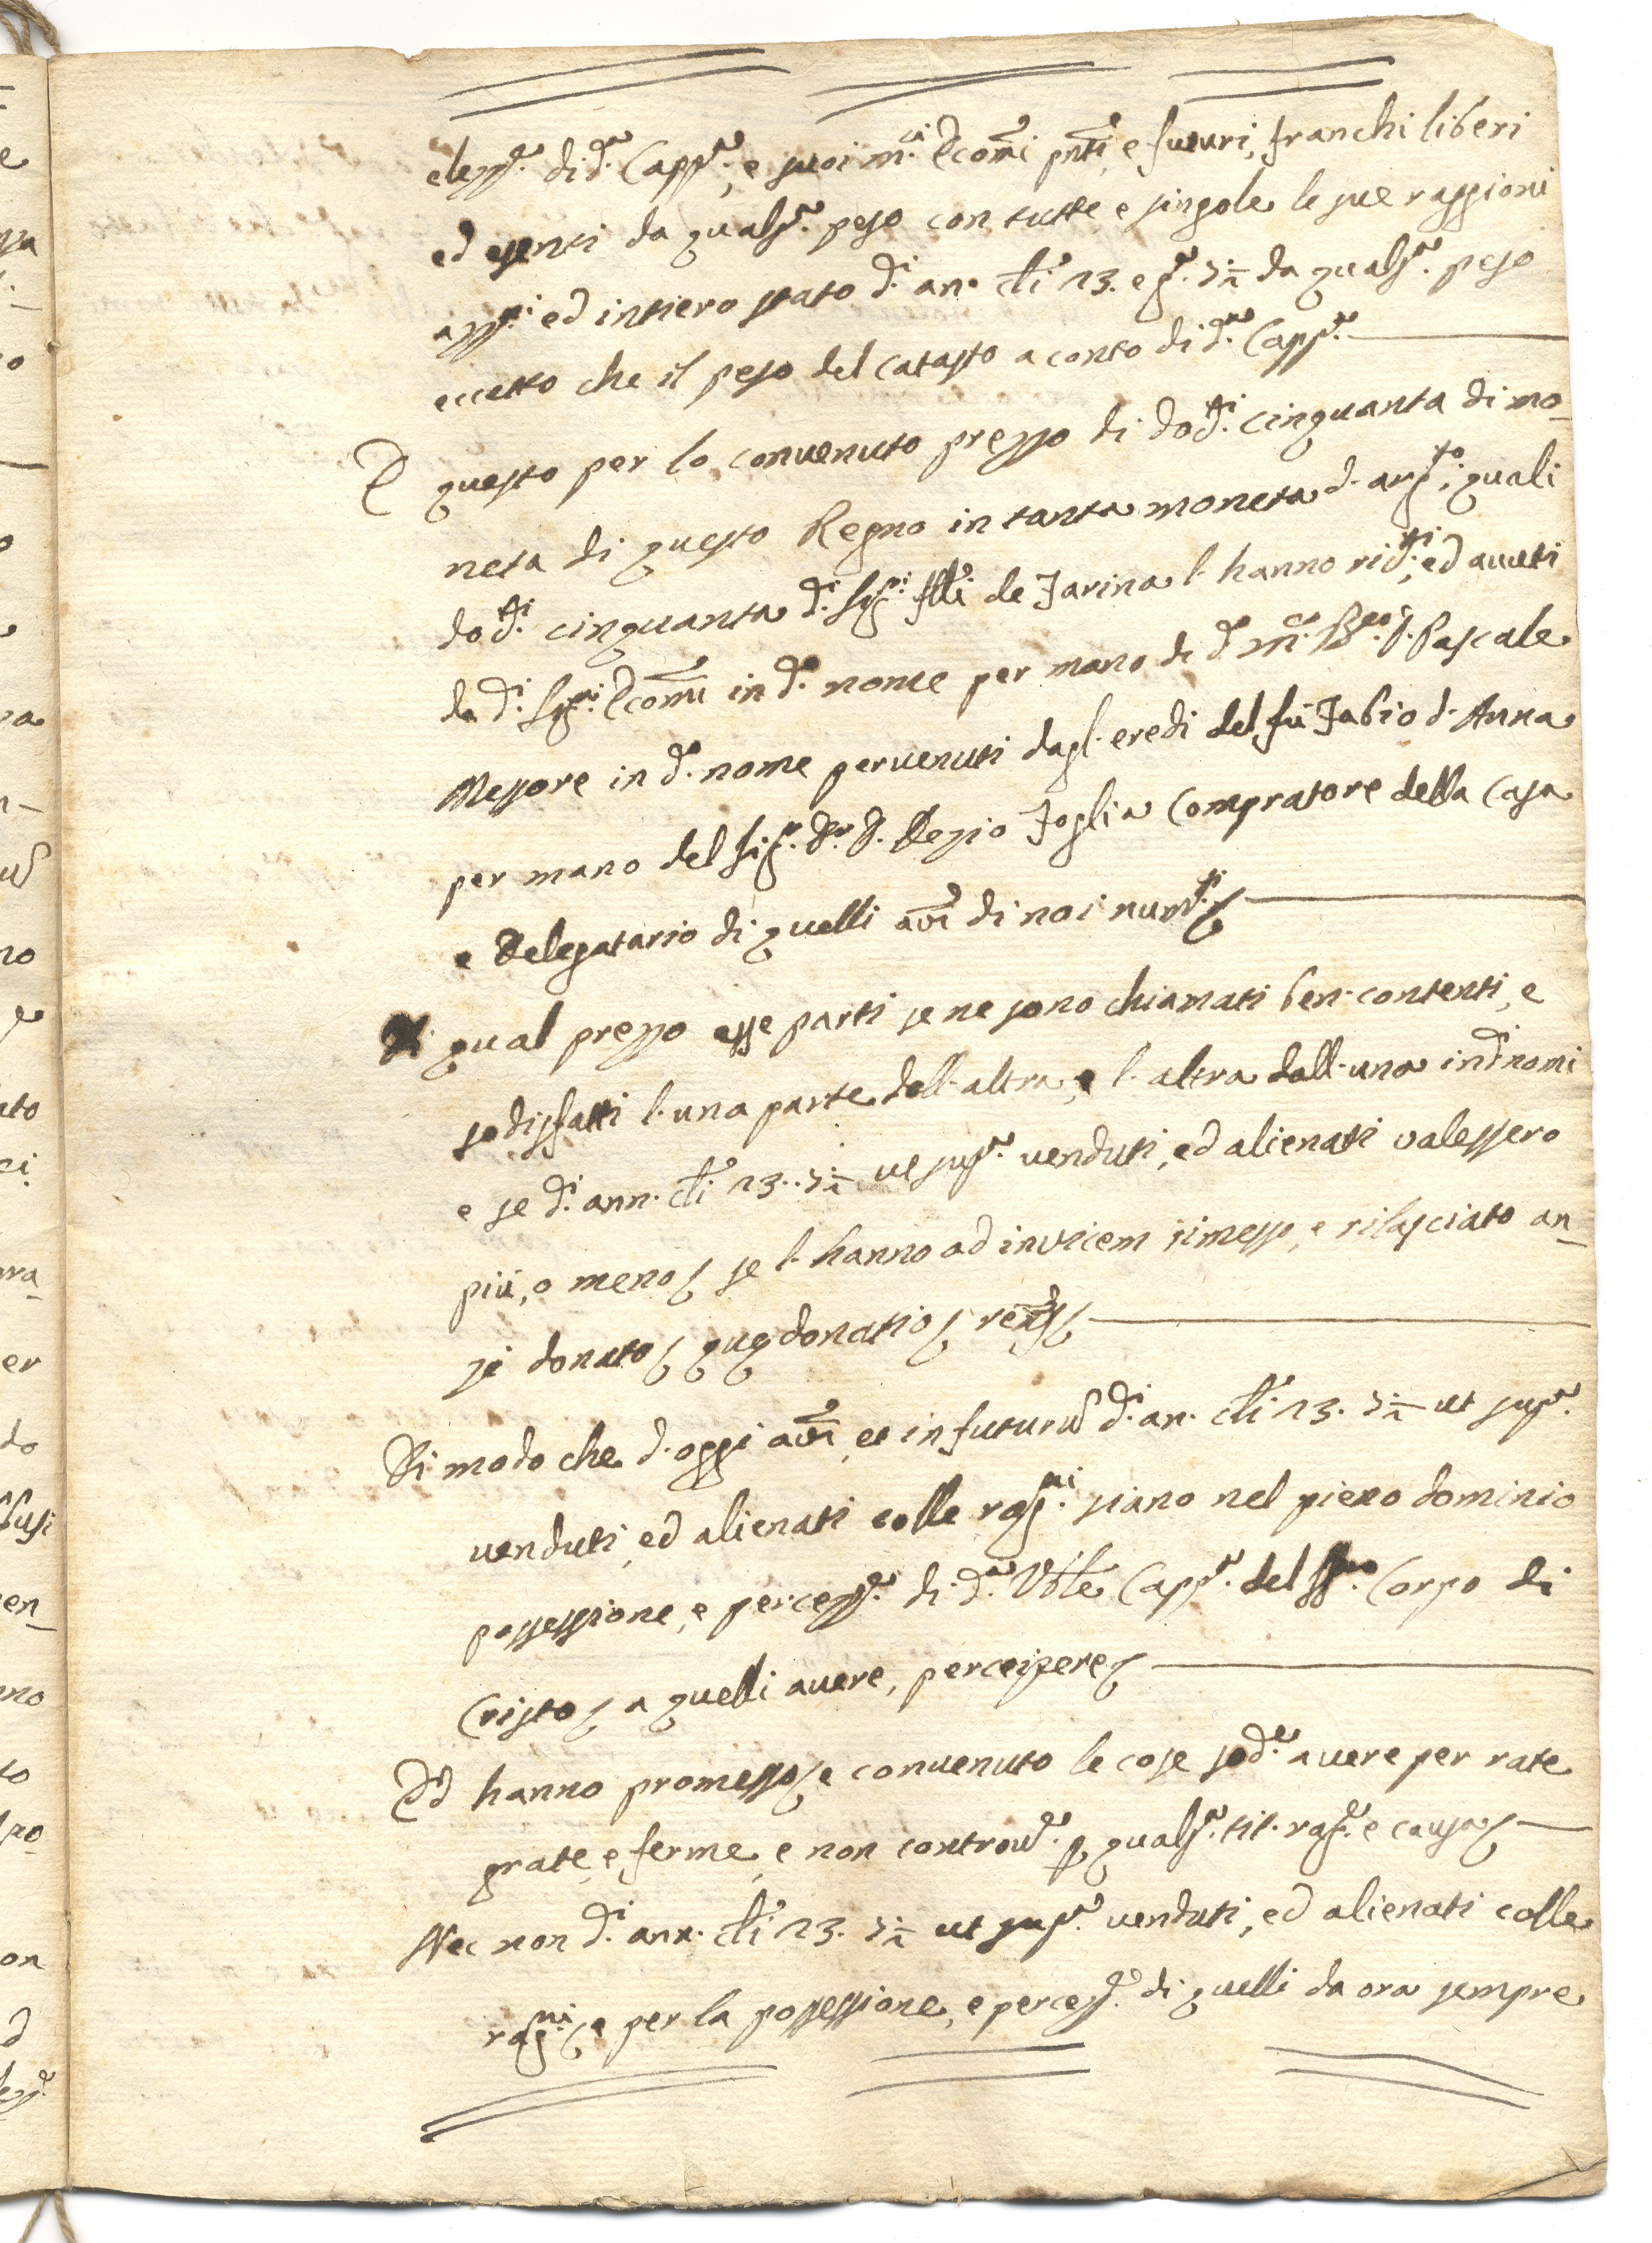 elegg.ne di d.ta Capp.a, e suoi m.ci Ecomi pnti, e futuri, franchi liberi
ed esenti da quals.a peso con tutte e singole le sue raggioni
azz.ni ed intiero stato d.i an. cti 13. e g. 7½ da quals.a peso
eccetto che il peso del catasto a conto di d.ta Capp.a
E questo per lo convenuto prezzo di do.ti cinquanta di mo_
neta di questo Regno in tanta moneta d'arg.to; quali
do.ti cinquanta d.i Sig.ri flli de Farina l'hanno ric.ti, ed avuti
da d.i Sig.ri Ecomi in d.o nome per mano di d.o m.co D. Pascale
Messore in d.o nome pervenuti dagl'eredi del fù Fabio d'Anna
per mano del Sig.r D.r D. Dezio Foglia Compratore della Casa
e Delegatario di quelli avi di noi num.ti
Di qual prezzo esse parti se ne sono chiamati ben contenti, e
sodisfatti l'una parte dell'altra, e l'altra dall'una in d.i nomi
e se d.i ann. cti 13. 7½ ut sup.a venduti, ed alienati valessero
più, o meno se l'hanno ad invicem rimesso, e rilasciato an_
zi donato que donatio
Di modo che d'oggi avi, et in futurũ d.i an. cti 13. 7½ ut sup.a
venduti, ed alienati colle rag.ni siano nel pieno dominio
possessione, e percezz.ne di d.ta Vble Capp.a del SS.mo Corpo di
Cristo a quelli avere, perceipere
Ed hanno promesso e convenuto le cose sod.te avere per rate
grate, e ferme, e non controv.re p quals.a tit. rag.ne e causa
Nec non d.i ann. cti 13. 7½ ut sup.a venduti, ed alienati colle
rag.ni e per la possessione, e percezz.ne di quelli da ora sempre